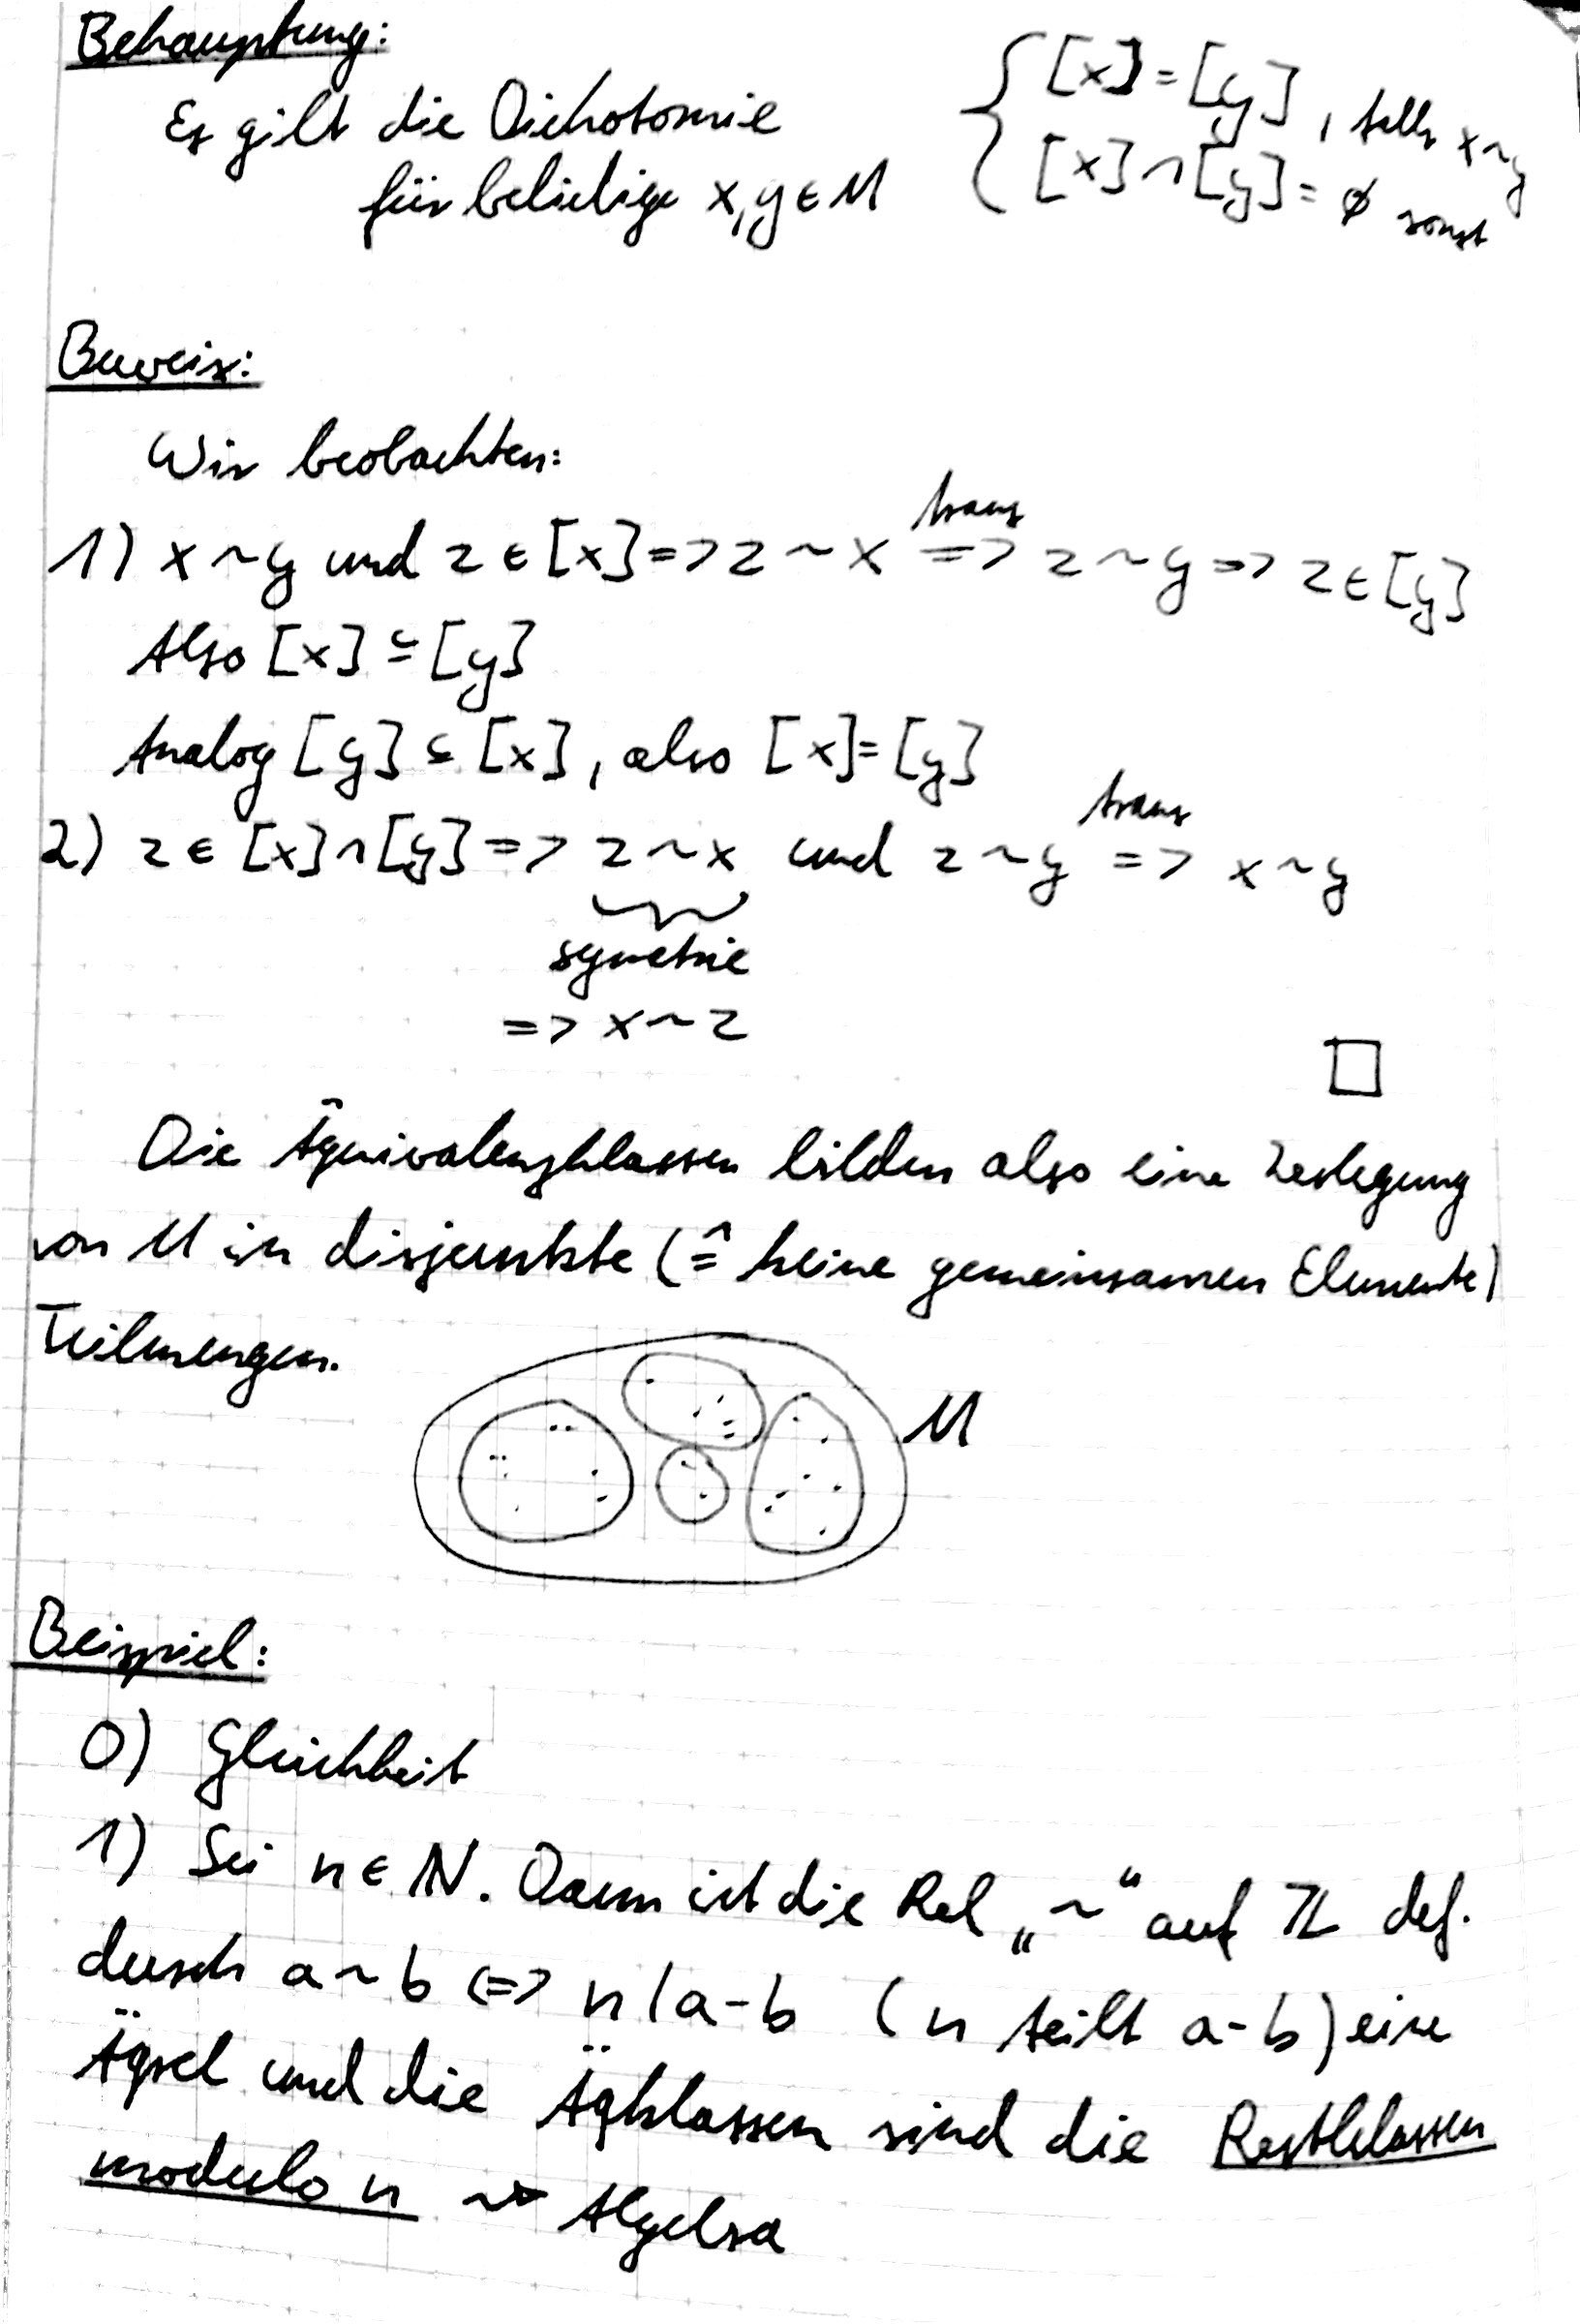 Behauptung:
Es gilt die Dichotomie
für beliebige x, y ∈ M
{ [x] = [y], falls x ~ y
[x] ∩ [y] = ∅ sonst
Beweis:
Wir beobachten:
1) x ~ y und z ∈ [x] => z ~ x =>(trans) z ~ y => z ∈ [y]
Also [x] ⊆ [y]
Analog [y] ⊆ [x], also [x] = [y]
2) z ∈ [x] ∩ [y] => z ~ x und z ~ y =>(trans) x ~ y
symetrie
=> x ~ z
□
Die Äquivalenzklassen bilden also eine Zerlegung
von M in disjunkte (≙ keine gemeinsamen Elemente)
Teilmengen.
M
Beispiel:
0) Gleichheit
1) Sei n ∈ ℕ. Dann ist die Rel „~“ auf ℤ def.
durch a ~ b <=> n | a-b (n teilt a-b) eine
Äqrel und die Äqklassen sind die Restklassen
modulo n ⇝ Algebra